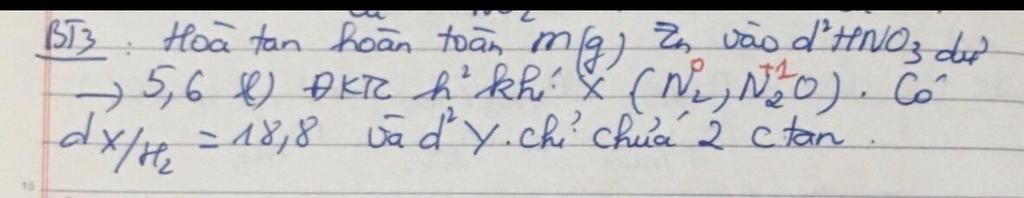 BT3 : Hoà tan hoàn toàn m(g) Zn vào d² HNO3 dư
→ 5,6 (l) ĐKTC h² khí X (N2⁰, N2⁺¹O). Có
dX/H2 = 18,8 và d² Y. chỉ chứa 2 c tan.
15